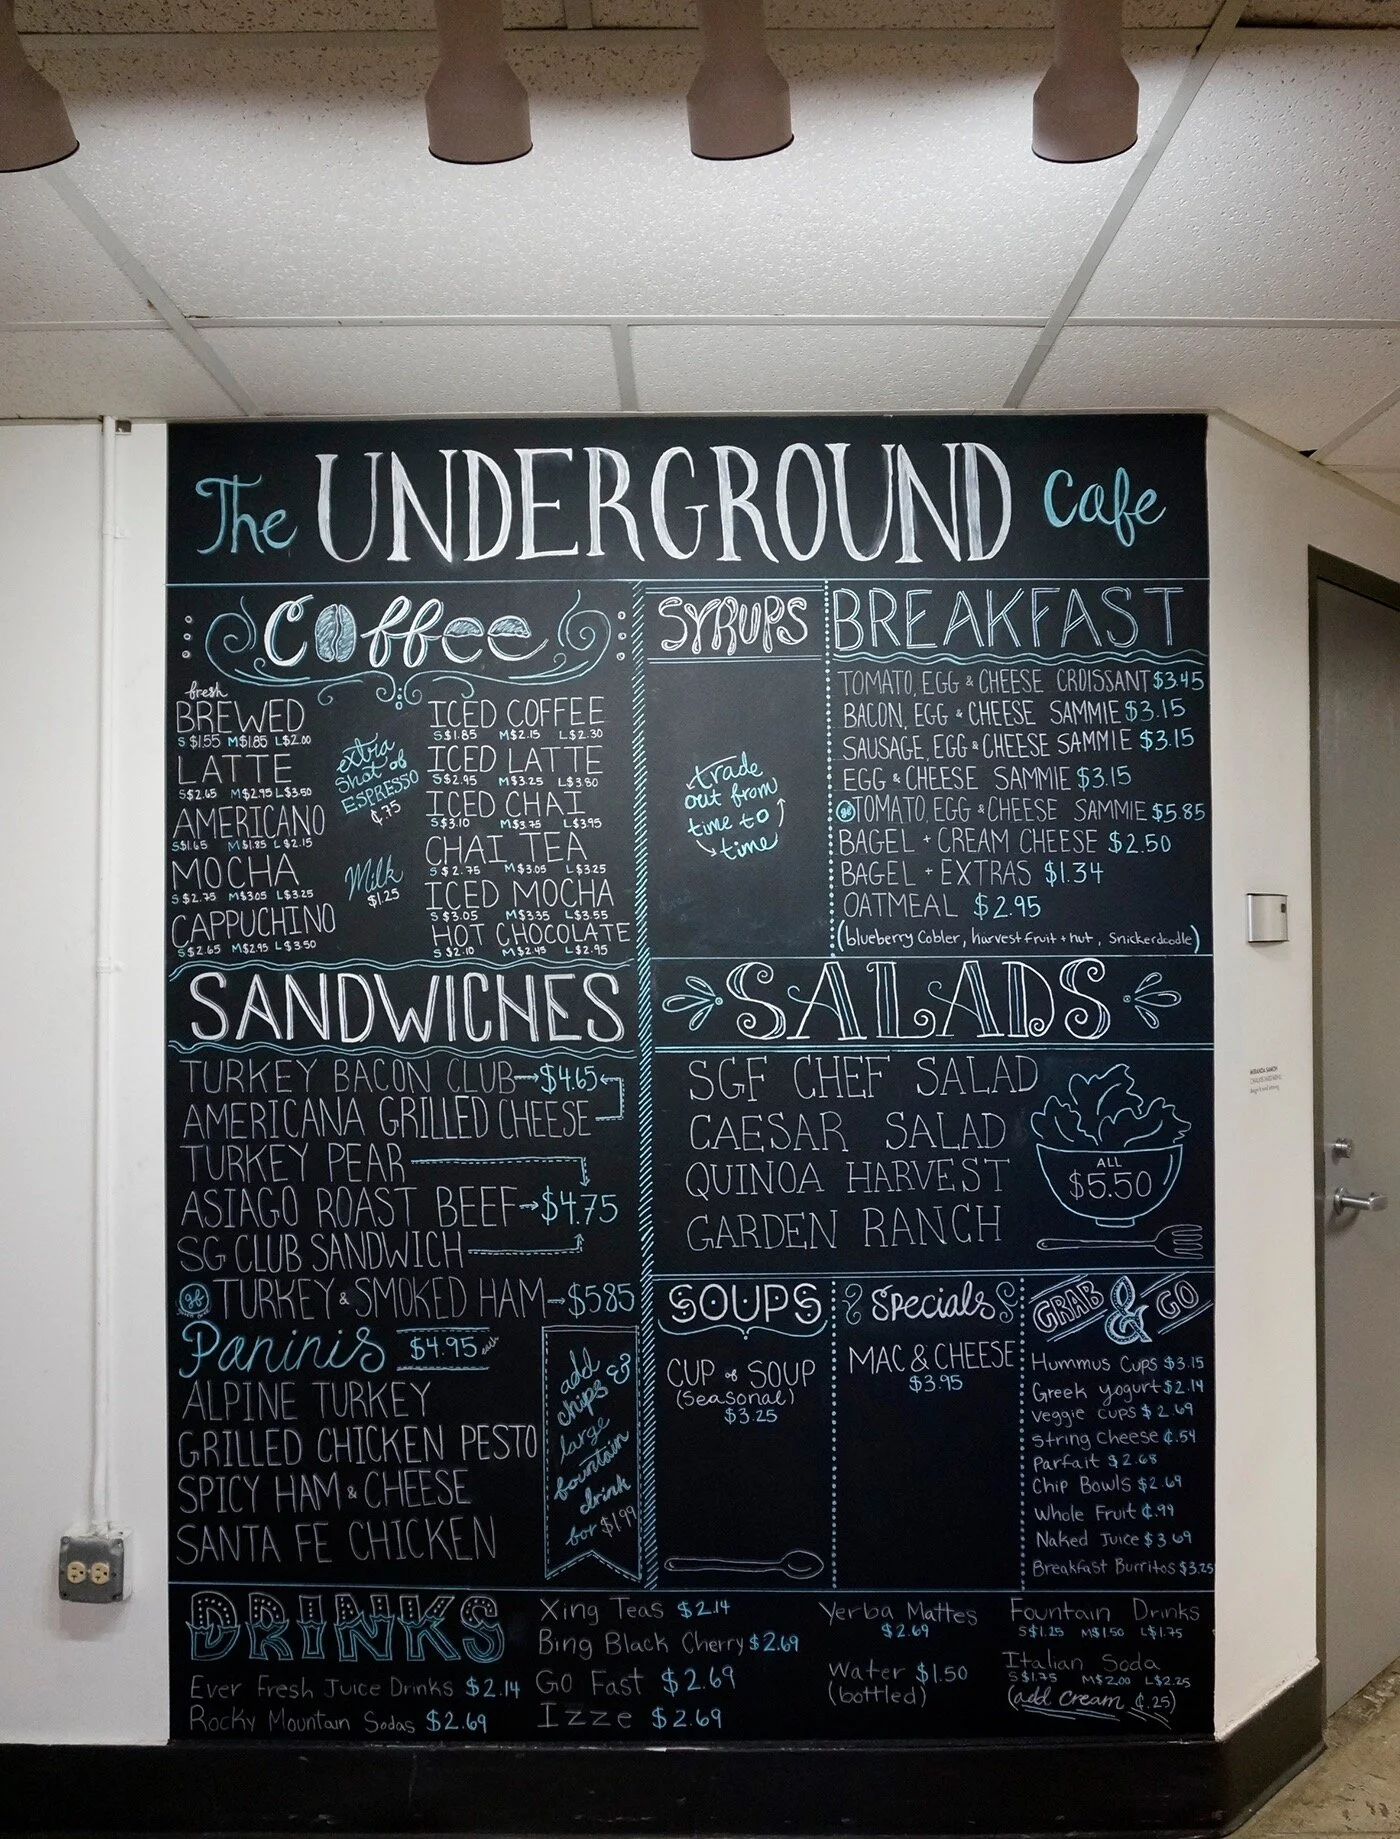 The UNDERGROUND Cafe
Coffee
fresh
BREWED
S $1.55 M $1.85 L $2.00
LATTE
S $2.65 M $2.95 L $3.50
AMERICANO
S $1.65 M $1.85 L $2.15
MOCHA
S $2.75 M $3.05 L $3.25
CAPPUCHINO
S $2.65 M $2.95 L $3.50
extra
shot of
ESPRESSO
¢.75
Milk
$1.25
ICED COFFEE
S $1.85 M $2.15 L $2.30
ICED LATTE
S $2.95 M $3.25 L $3.80
ICED CHAI
S $3.10 M $3.75 L $3.95
CHAI TEA
S $2.75 M $3.05 L $3.25
ICED MOCHA
S $3.05 M $3.35 L $3.55
HOT CHOCOLATE
S $2.10 M $2.45 L $2.95
SYRUPS
trade
out from
time to
time
BREAKFAST
TOMATO, EGG & CHEESE CROISSANT $3.45
BACON, EGG & CHEESE SAMMIE $3.15
SAUSAGE, EGG & CHEESE SAMMIE $3.15
EGG & CHEESE SAMMIE $3.15
gf TOMATO, EGG & CHEESE SAMMIE $5.85
BAGEL + CREAM CHEESE $2.50
BAGEL + EXTRAS $1.34
OATMEAL $2.95
(blueberry Cobler, harvest fruit + nut, Snickerdoodle)
SANDWICHES
TURKEY BACON CLUB → $4.65
AMERICANA GRILLED CHEESE
TURKEY PEAR
ASIAGO ROAST BEEF → $4.75
SG CLUB SANDWICH
gf TURKEY & SMOKED HAM → $585
Paninis $4.95 each
ALPINE TURKEY
GRILLED CHICKEN PESTO
SPICY HAM & CHEESE
SANTA FE CHICKEN
add
chips &
large
fountain
drink
for $1.99
SALADS
SGF CHEF SALAD
CAESAR SALAD
QUINOA HARVEST
GARDEN RANCH
ALL
$5.50
SOUPS
CUP of SOUP
(seasonal)
$3.25
Specials
MAC & CHEESE
$3.95
GRAB & GO
Hummus Cups $3.15
Greek yogurt $2.14
Veggie cups $2.69
String Cheese ¢.54
Parfait $2.68
Chip Bowls $2.69
Whole Fruit ¢.99
Naked Juice $3.69
Breakfast Burritos $3.25
DRINKS
Ever Fresh Juice Drinks $2.14
Rocky Mountain Sodas $2.69
Xing Teas $2.14
Bing Black Cherry $2.69
GO Fast $2.69
Izze $2.69
Yerba Mattes
$2.69
Water $1.50
(bottled)
Fountain Drinks
S $1.25 M $1.50 L $1.75
Italian Soda
S $1.75 M $2.00 L $2.25
(add cream ¢.25)